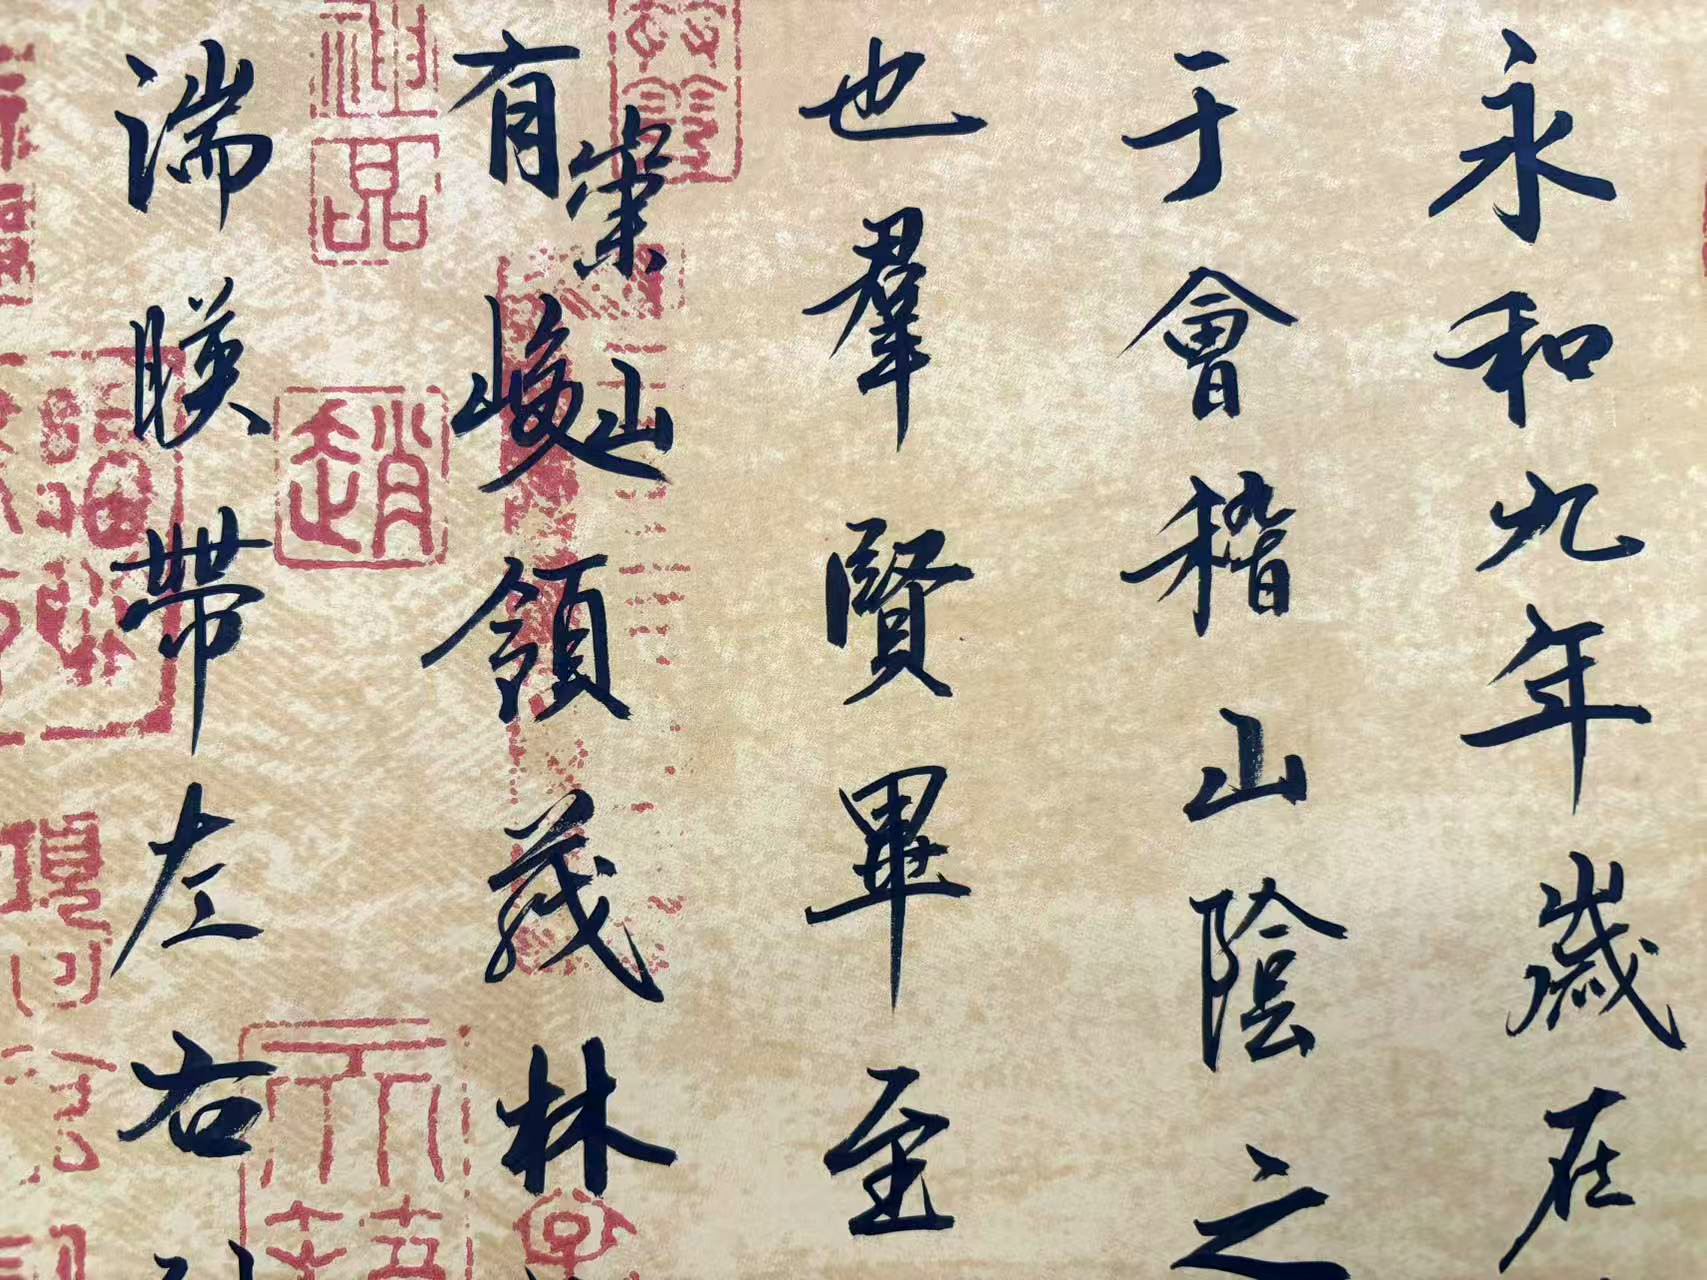 永和九年歲在
于會稽山陰之
也羣賢畢至
有崇山
峻領茂林
湍暎帶左右
趙